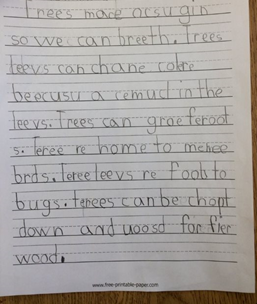 Trees move ocsugin
so we can breeth. Trees
leevs can chane colre
beecusu a cemucl in the
leevs. Trees can groe feroot
s. Teree re home to mehee
brds. Teree leevs re foob to
bugs. terees can be chopt
down and uoosd for fier
wood.
www.free-printable-paper.com